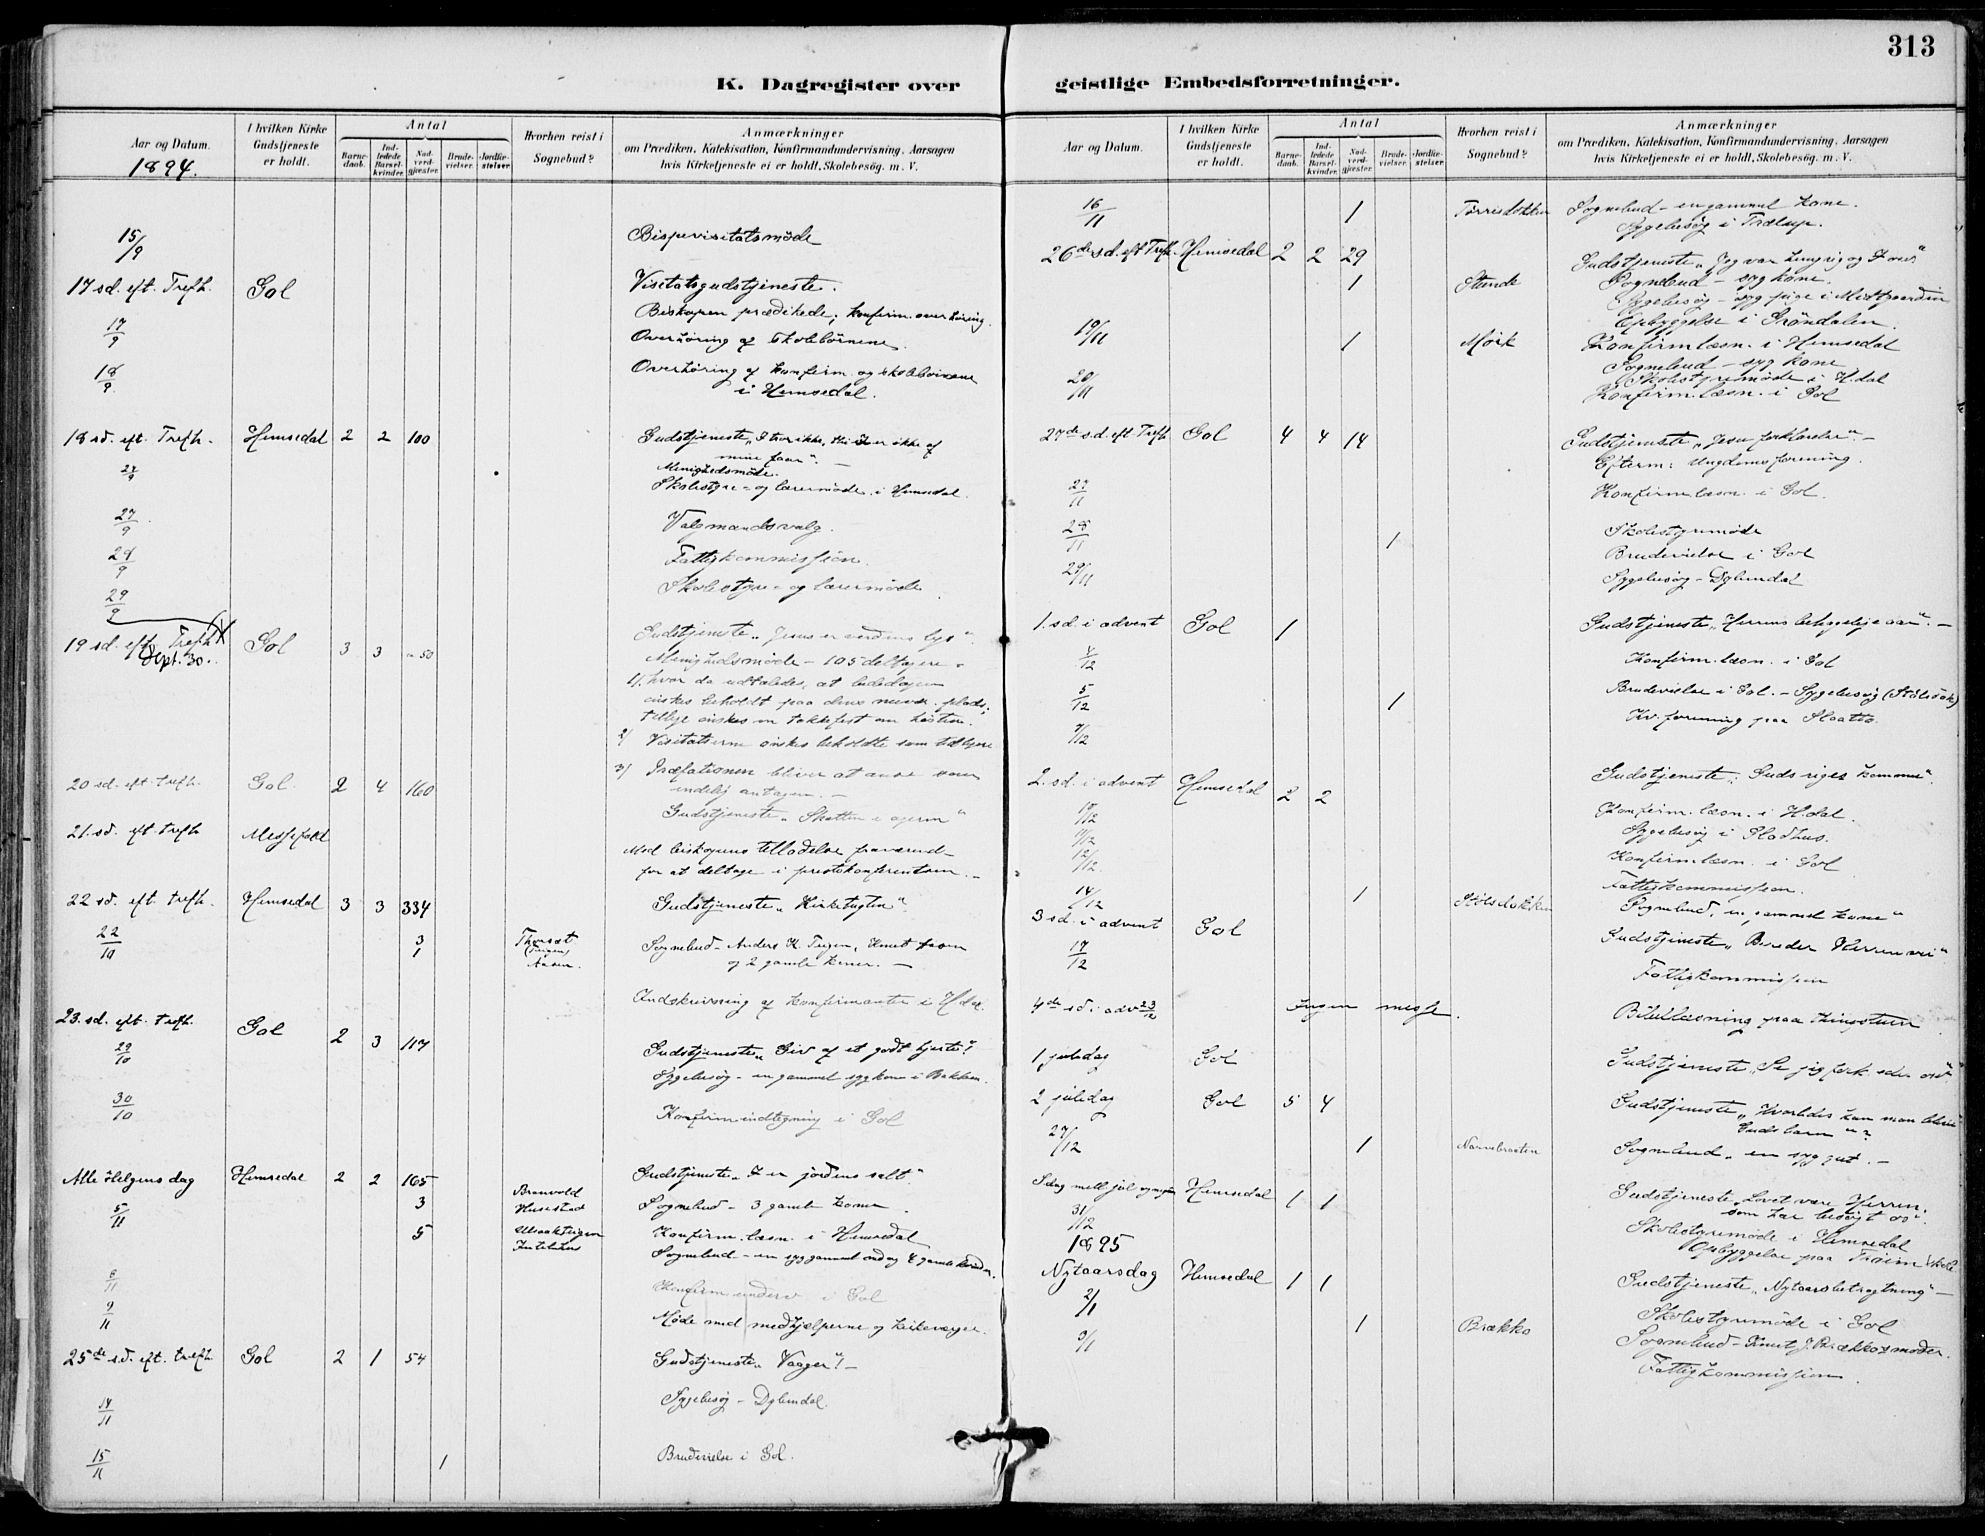 313
K. Dagregister over geistlige Embedsforretninger.
Aar og Datum.
1894.
I hvilken Kirke Gudstjeneste er holdt.
Antal
Barnedaab.
Indledede Barselkvinder.
Nadverdgjæster.
Brudevielser.
Jordfæstelser.
Hvorhen reist i Sognebud?
Anmærkninger
om Prædiken, Katekisation, Konfirmandundervisning, Aarsagen
hvis Kirketjeneste ei er holdt, Skolebesøg. m. V.
15/9 Bispevisitatsmöde
17 sd. eft. Trefh. Gol Visitatsgudstjeneste.
Biskopen prædikede; konfirm. overhöring.
17/9 Overhöring af skolebörnene.
18/9 Overhöring af konfirm. og skolebörnene
i Hemsedal.
18 sd. eft. Trefh. Hemsedal 2 2 100 Gudstjeneste „I tror ikke, thi I er ikke af
mine faar“. –
Menighedsmöde.
24/9 Skolestyre- og lærermöde i Hemsedal.
27/9 Valgmandsvalg.
28/9 Fattigkommission.
29/9 Skolestyre- og lærermöde.
19 sd. eft. Trefh. Sept. 30. Gol 3 3 50 Gudstjeneste „Jesus er verdens lys“
Menighedsmöde – 105 deltagere
1/ hvor da udtaltes, at bededagen
önskes beholdt paa dens nuvær. plads;
tillige önskes en takkefest om hösten.
2/ Visitatserne önskes beholdte som tidligere
3/ Præfationen bliver at anse som
endelig antagen. –
20 sd. eft. trefh. Gol. 2 4 160 Gudstjeneste „Skatten i ageren“
21. sd. eft. trefh Messefald Med biskopens tilladelse fraværende
for at deltage i prestekonferentsen. –
22 sd. eft. trefh. Hemsedal 3 3 334 Gudstjeneste „Kirketugten“.
22/10 3 1 Sognebud – Anders K. Tugen, Knut
og 2 gamle koner. –
Indskrivning af konfirmanter i H.dal.
23. sd. eft. trefh. Gol 2 3 117 Gudstjeneste „Giv af et godt hjerte“!
29/10 Sygebesög – en gammel syg kone i Bakken.
30/10 Konfirm.indtegning i Gol
Alle Helgens dag Hemsedal 2 2 165 Gudstjeneste „I er jordens salt“
5/11 3 Sognebud – 3 gamle koner.
5 Konfirm. læsn. i Hemsedal
Sognebud – en syg gammel
8/11 Konfirm.underv. i Gol
9/11 Möde med medhjælperne og kirkeverger.
25de sd. eft. trefh. Gol 2 1 54 Gudstjeneste „Vaager“! –
14/11 Sygebesög – Dylendal.
15/11 1 Brudevielse i Gol.
Aar og Datum.
I hvilken Kirke Gudstjeneste er holdt.
Antal
Barnedaab.
Indledede Barselkvinder.
Nadverdgjæster.
Brudevielser.
Jordfæstelser.
Hvorhen reist i Sognebud?
Anmærkninger
om Prædiken, Katekisation, Konfirmandundervisning, Aarsagen
hvis Kirketjeneste ei er holdt, Skolebesøg. m. V.
16/11 1 Sognebud – en gammel kone.
Sygebesög i
26de sd. eft Trefh. Hemsedal 2 2 29 Gudstjeneste „Jeg var hungrig og I“
1 Sognebud – syg kone.
Sygebesög – syg pige i
Opbyggelse i Gröndalen.
19/11 1 Mörk Konfirm.læsn. i Hemsedal
Sognebud – syg kone
20/11 Skolestyremöde i H.dal
Konfirm. læsn. i Gol
27de sd. eft Trefh Gol 4 4 14 Gudstjeneste „Jesu forklarelse“. –
Efterm: Ungdomsforening.
27/11 Konfirm læsn. i Gol.
28/11 Skolestyremöde
1 Brudevielse i Gol
29/11 Sygebesög – Dylendal
1. sd. i advent Gol 1 Gudstjeneste „Herrens behagelige aar“. –
4/12 Konfirm.læsn. i Gol
5/12 1 Brudevielse i Gol. – Sygebesög
7/12 Kv.forening paa
2. sd. i advent Hemsedal 2 2 Gudstjeneste „Guds riges komme“.
10/12 Konfirm.læsn. i H.dal.
11/12 Sygebesög i
12/12 Konfirm læsn. i Gol
Fattigkommission.
14/12 1 Sognebud, en gammel kone
3 sd. i advent Gol Gudstjeneste „Bereder Herrens vei“
17/12 Fattigkommission
4de sd. i adv 23/12 Ingen messe. Bibellæsning paa
1 juledag Gol Gudstjeneste „Se jeg fork. eder“
2 juledag Gol 5 4 Gudstjeneste „Hvorledes kan man blive
Guds barn“?
27/12 1 Sognebud – en syg gut. –
Sdag mell jul og nytaar Hemsedal 1 1 Gudstjeneste „Lovet være Herren,
som har besögt os“.
31/12 Skolestyremöde i Hemsedal
Opbyggelse paa Tröim skole
1895
Nytaarsdag Hemsedal 1 1 Gudstjeneste „Nytaarsbetragtning“ –
2/1 Skolestyremöde i Gol
1 Brække Sognebud – Knut J. Brækkes moder.
3/1 Fattigkommission.